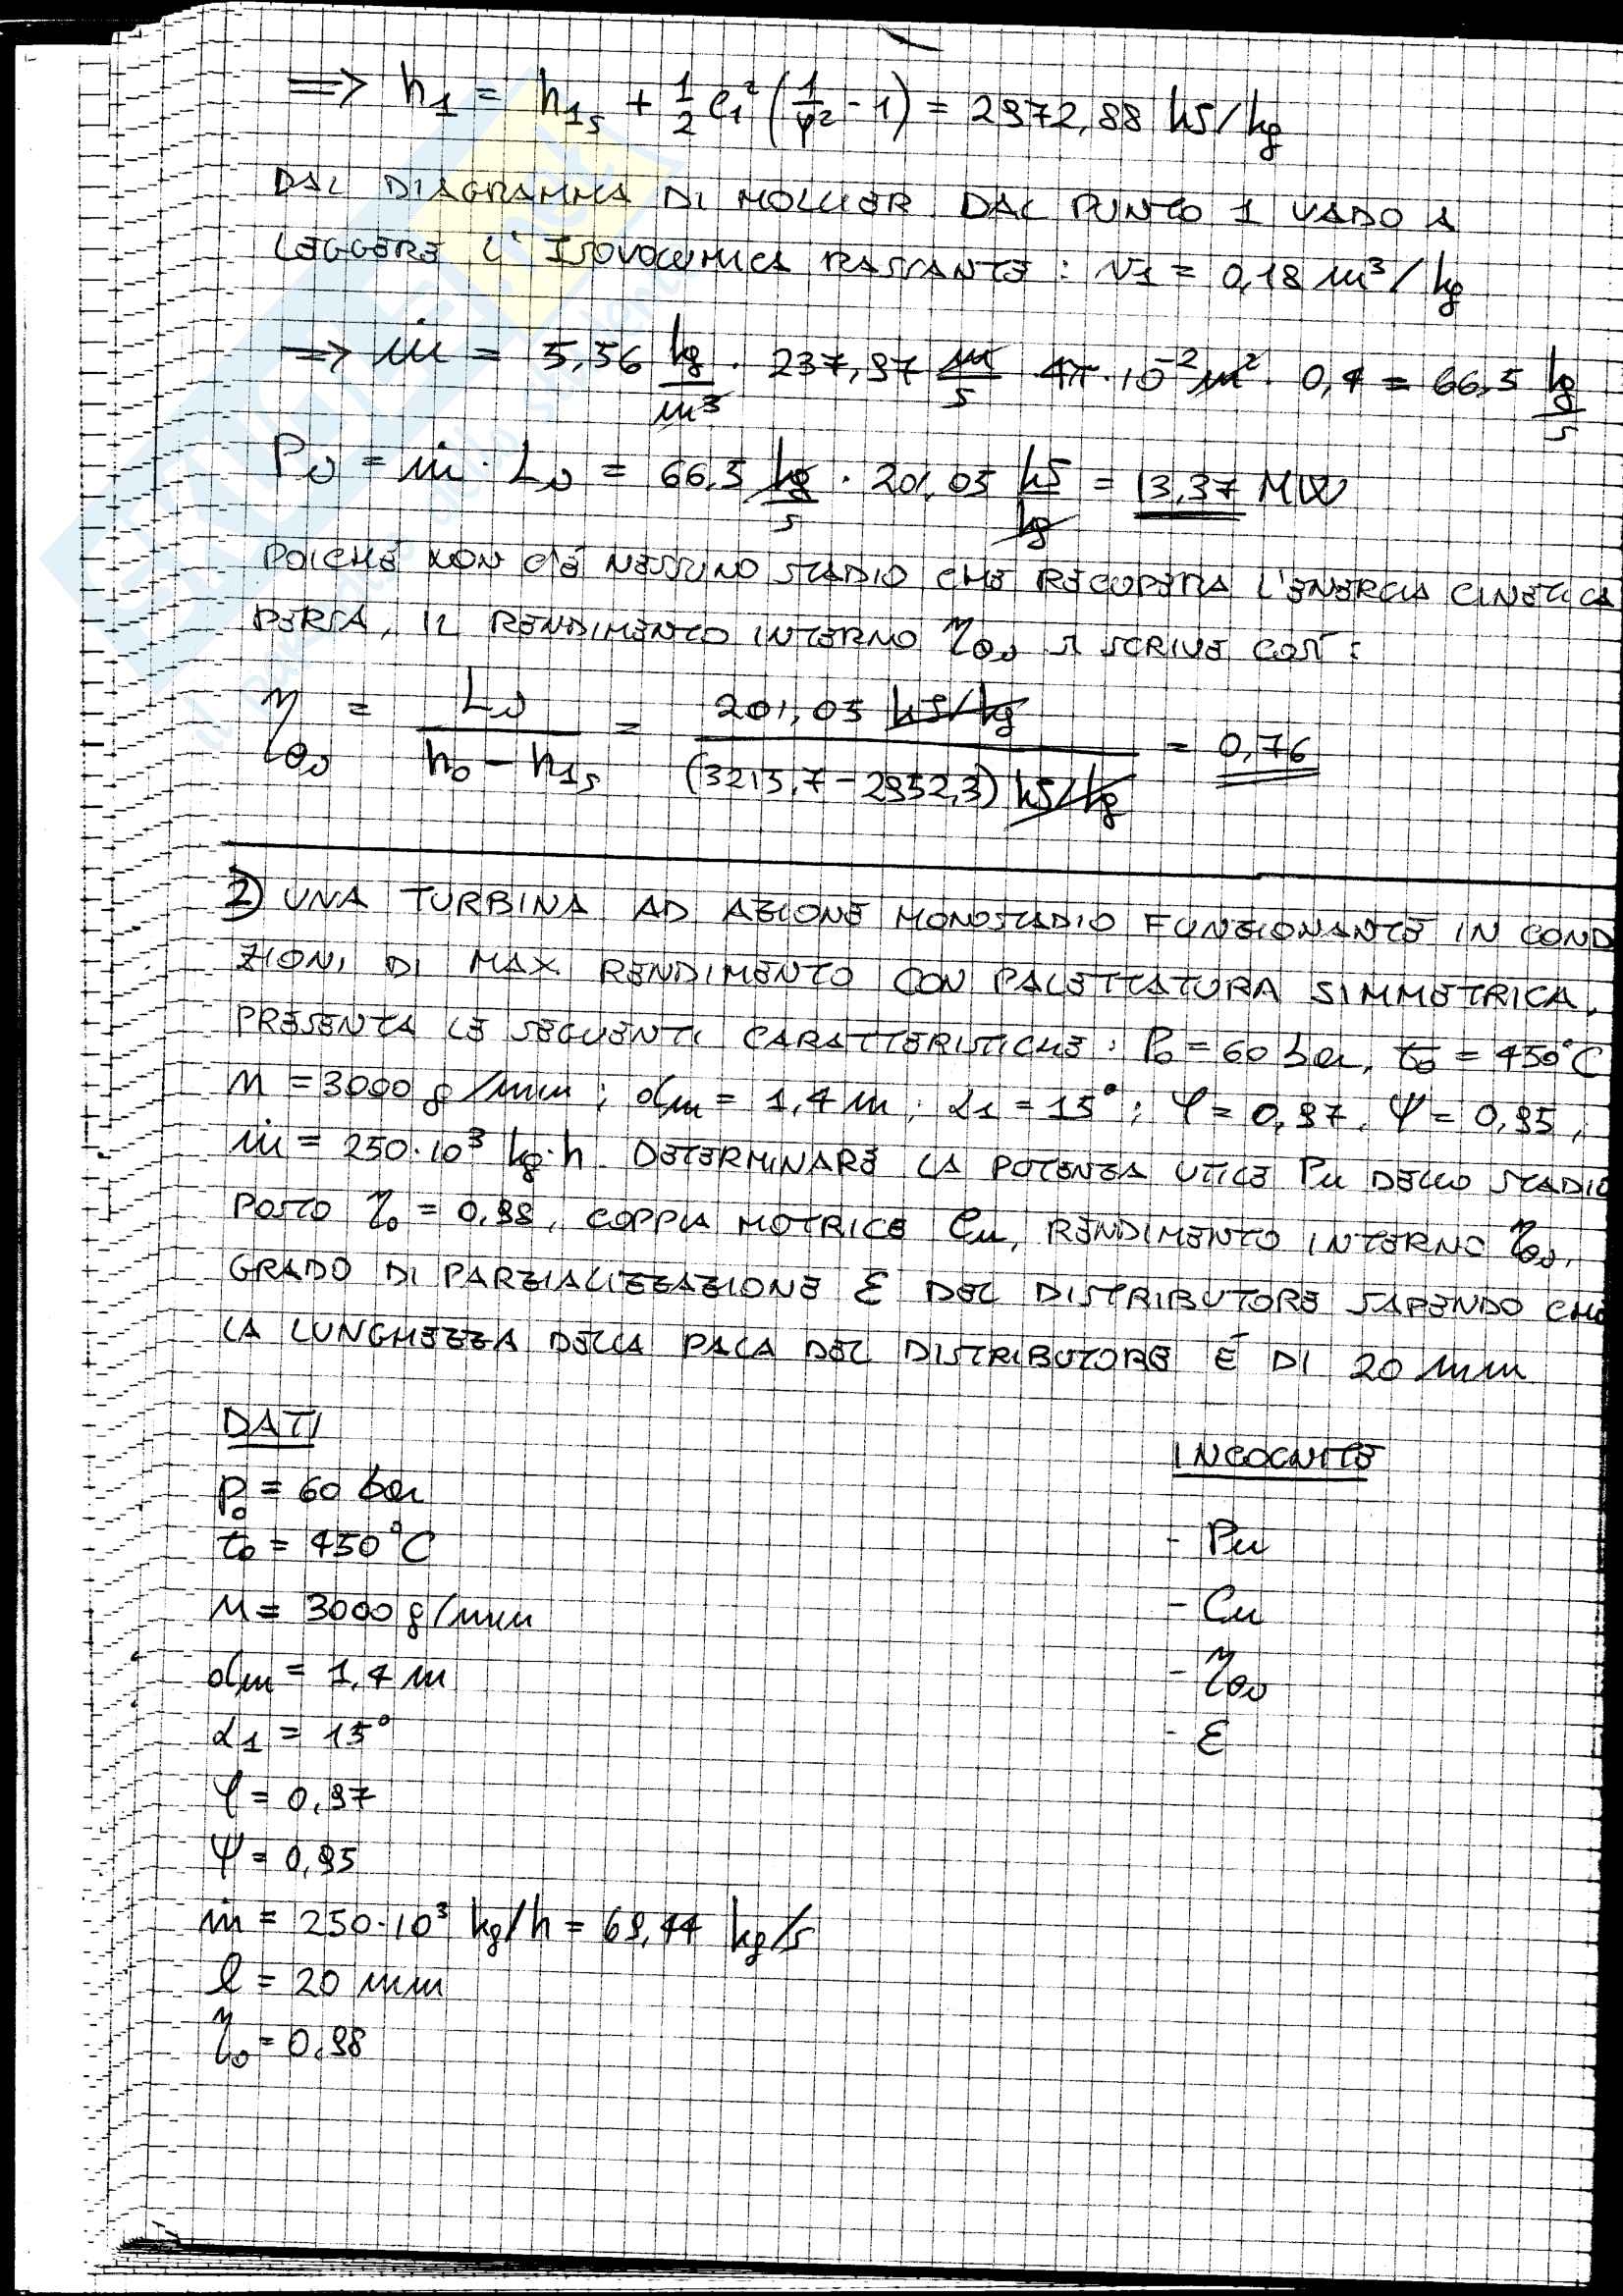 ⇒ h₁ = h₁ₛ + 1/2 c₁² (1/φ² - 1) = 2972,88 kJ/kg
DAL DIAGRAMMA DI MOLLIER DAL PUNTO 1 VADO A
LEGGERE L'ISOVOLUMICA PASSANTE : v₁ = 0,18 m³/kg
⇒ ṁ = 5,56 kg/m³ · 237,97 m/s · 4π·10⁻² m² · 0,4 = 66,5 kg/s
Pᵢ = ṁ · Lᵢ = 66,5 kg/s · 201,05 kJ/kg = 13,37 MW
POICHÉ NON C'È NESSUNO STADIO CHE RECUPERA L'ENERGIA CINETICA
PERSA, IL RENDIMENTO INTERNO ηθᵢ SI SCRIVE COSÌ :
ηθᵢ = Lᵢ / (h₀ - h₁ₛ) = 201,05 kJ/kg / (3215,7 - 2952,3) kJ/kg = 0,76
2) UNA TURBINA AD AZIONE MONOSTADIO FUNZIONANTE IN COND
ZIONI DI MAX RENDIMENTO CON PALETTATURA SIMMETRICA,
PRESENTA LE SEGUENTI CARATTERISTICHE : P₀ = 60 bar, t₀ = 450°C
n = 3000 g/min ; dm = 1,4 m ; α₁ = 15° ; φ = 0,97, ψ = 0,95 ;
ṁ = 250·10³ kg·h. DETERMINARE LA POTENZA UTILE Pu DELLO STADIO
POSTO η₀ = 0,98, COPPIA MOTRICE Cu, RENDIMENTO INTERNO ηθᵢ,
GRADO DI PARZIALIZZAZIONE ε DEL DISTRIBUTORE SAPENDO CHE
LA LUNGHEZZA DELLA PALA DEL DISTRIBUTORE È DI 20 mm
DATI
INCOGNITE
P₀ = 60 bar
- Pu
t₀ = 450°C
- Cu
n = 3000 g/min
- ηθᵢ
dm = 1,4 m
- ε
α₁ = 15°
φ = 0,97
ψ = 0,95
ṁ = 250·10³ kg/h = 69,44 kg/s
l = 20 mm
η₀ = 0,98